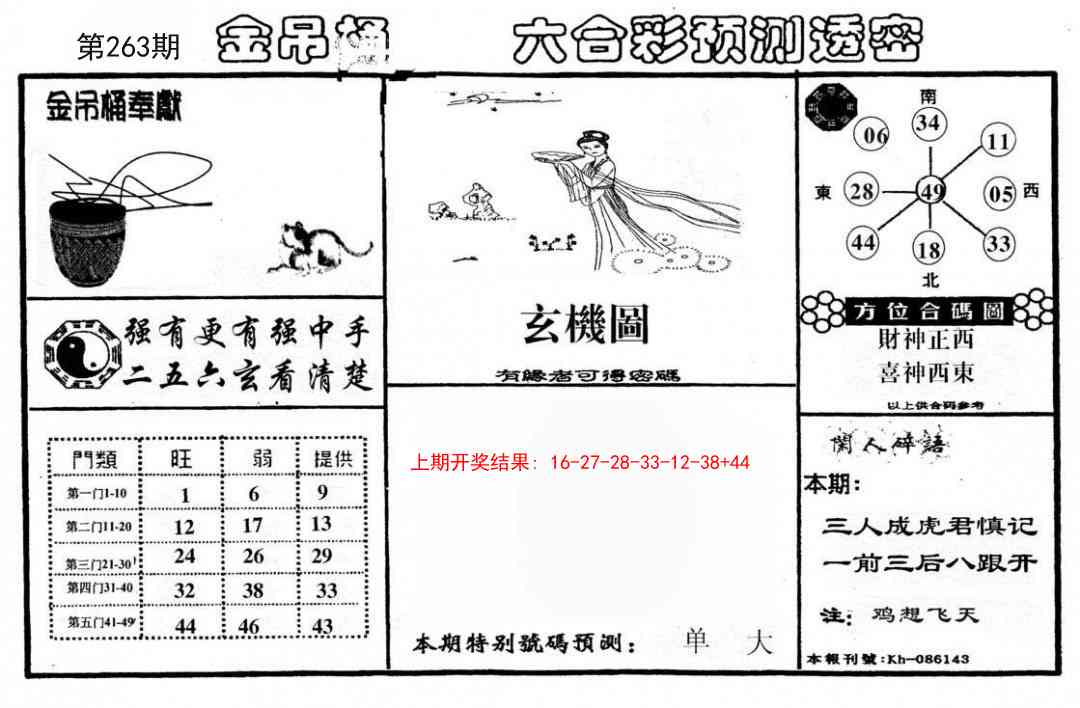 第263期
金吊桶
六合彩预测透密
金吊桶奉獻
强有更有强中手
二五六玄看清楚
門類 旺 弱 提供
第一门1-10 1 6 9
第二门11-20 12 17 13
第三门21-30 24 26 29
第四门31-40 32 38 33
第五门41-49 44 46 43
玄機圖
有緣者可得密碼
上期开奖结果：16-27-28-33-12-38+44
本期特别號碼预测： 单 大
南
06 34 11
東 28 49 05 西
44 18 33
北
方位合碼圖
財神正西
喜神西東
以上供合码参考
閑人碎語
本期：
三人成虎君慎记
一前三后八跟开
注：鸡想飞天
本報刊號:Kh-086143